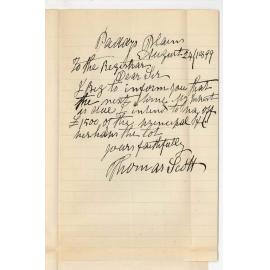 Paddys Plains
August 24/1899
To the Registrar
Dear Sir
I Beg to inform you that
the next time My Intrest
is due I intend to Pay off
£1500 of the principal
perhaps the lot
yours faithfully
Thomas Scott